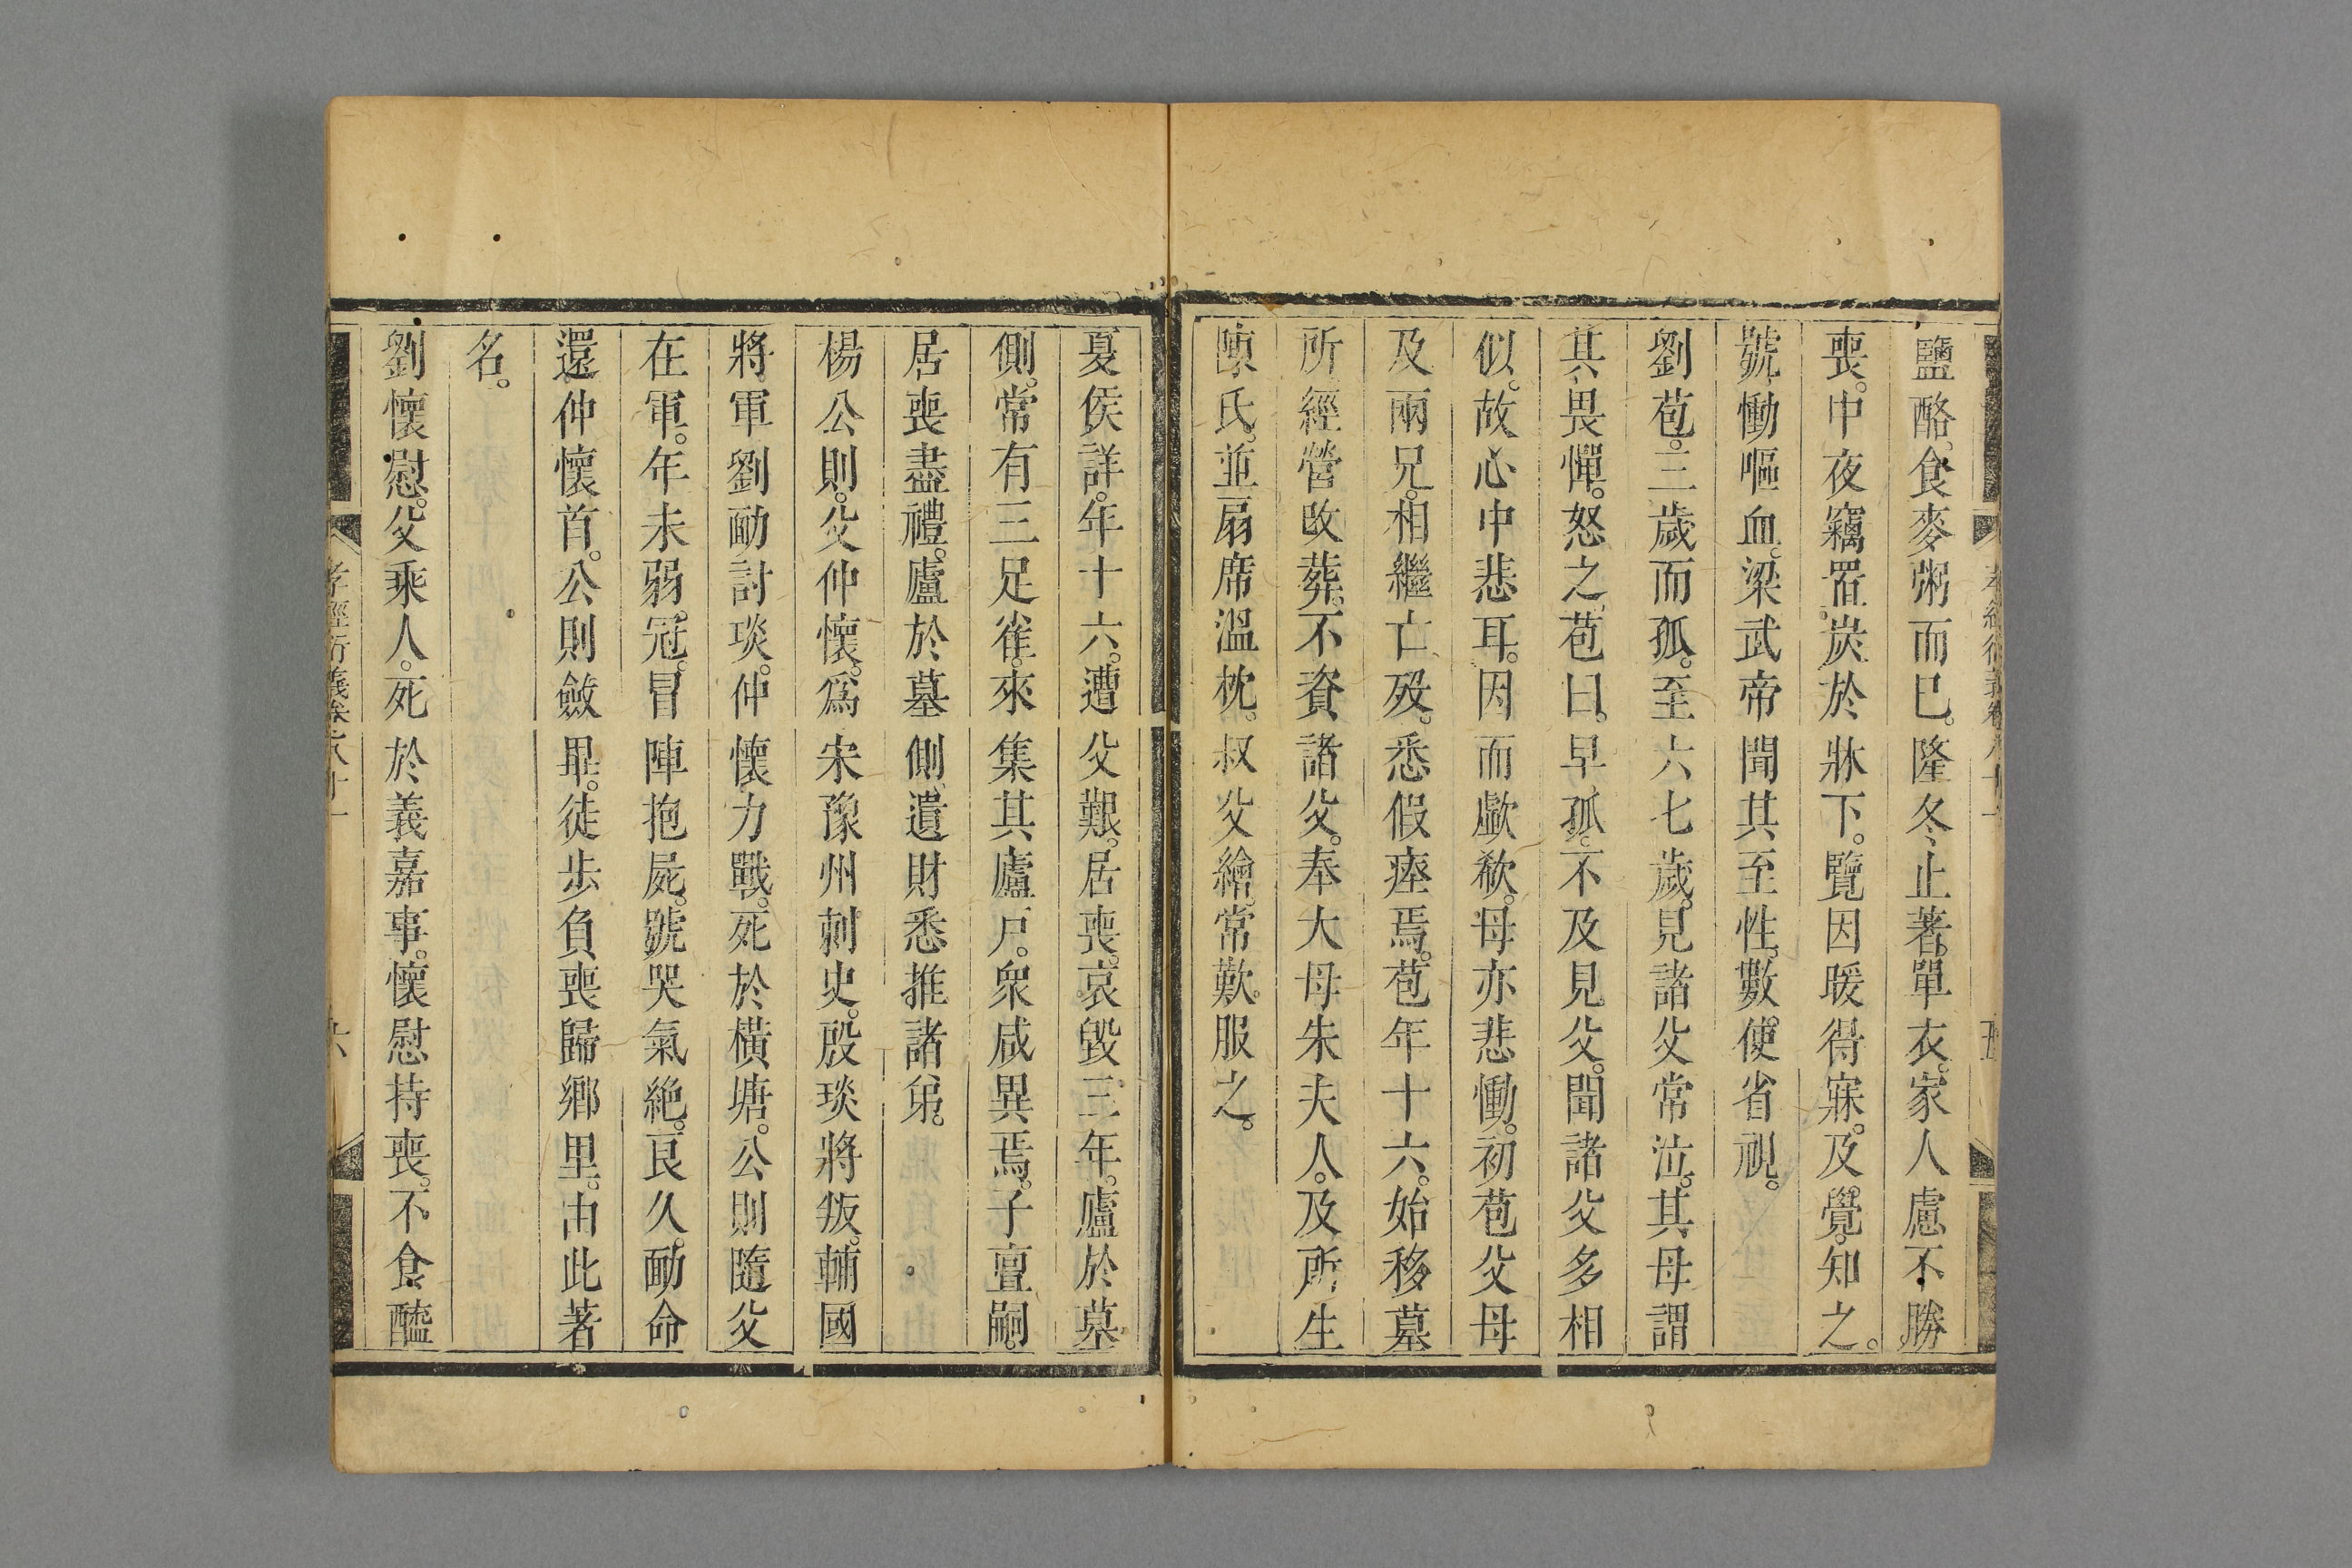 鹽酪。食麥粥而巳。隆冬止著。單衣。家人慮不勝
喪。中夜竊置炭於牀下。覽因暖得寐。及覺。知之。
號慟嘔血。梁武帝聞其至性。數使省視。
劉苞。三歲而孤。至六七歲。見諸父常泣。其母謂
其畏憚。怒之。苞曰。早孤。不及見父。聞諸父多相
似。故心中悲耳。因而歔欷。母亦悲慟。初苞父母
及兩兄。相繼亡歿。悉假瘞焉。苞年十六。始移墓
所經營改葬。不資諸父。奉大母朱夫人。及所生
陳氏。並扇席溫枕。叔父繪。常歎服之。
夏侯詳。年十六。遭父艱。居喪。哀毀三年。廬於墓
側。常有三足雀。來集其廬戶。衆咸異焉。子亶嗣。
居喪盡禮。廬於墓側。遺財悉推諸弟。
楊公則。父仲懷。爲宋豫州刺史。殷琰將叛。輔國
將軍劉勔討琰。仲懷力戰。死於橫塘。公則隨父
在軍。年未弱冠。冒陣抱屍。號哭氣絶。良久。勔命
還仲懷首。公則斂畢。徒步負喪歸鄉里。由此著
名。
孝經衍義卷之八十一
六
劉懷慰。父乘人。死於義嘉事。懷慰持喪。不食醯